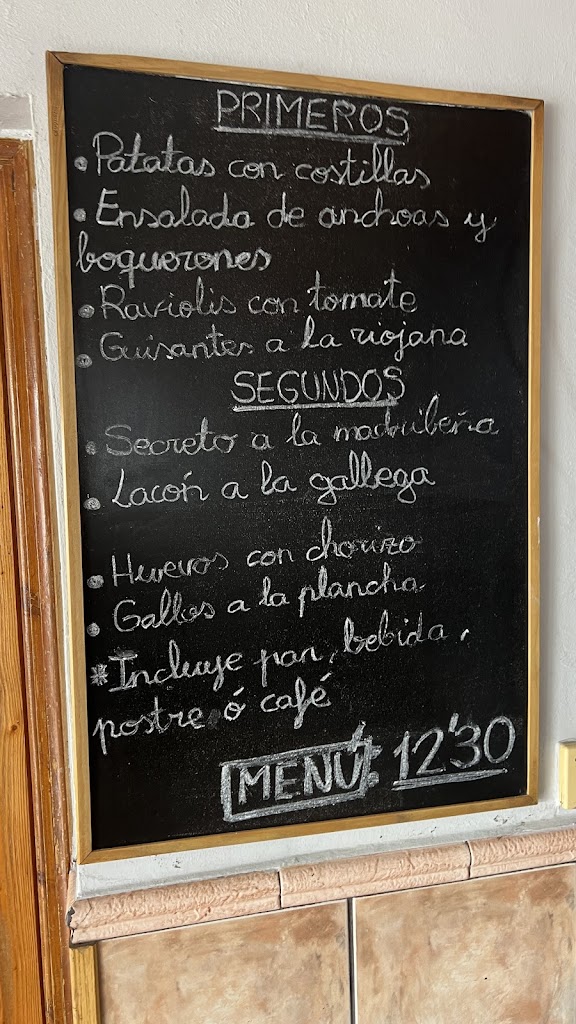 PRIMEROS
• Patatas con costillas
• Ensalada de anchoas y
boquerones
• Raviolis con tomate
• Guisantes a la riojana
SEGUNDOS
• Secreto a la madrileña
• Lacón a la gallega
• Huevos con chorizo
• Gallos a la plancha
*Incluye pan, bebida,
postre ó café
MENÚ: 12'30